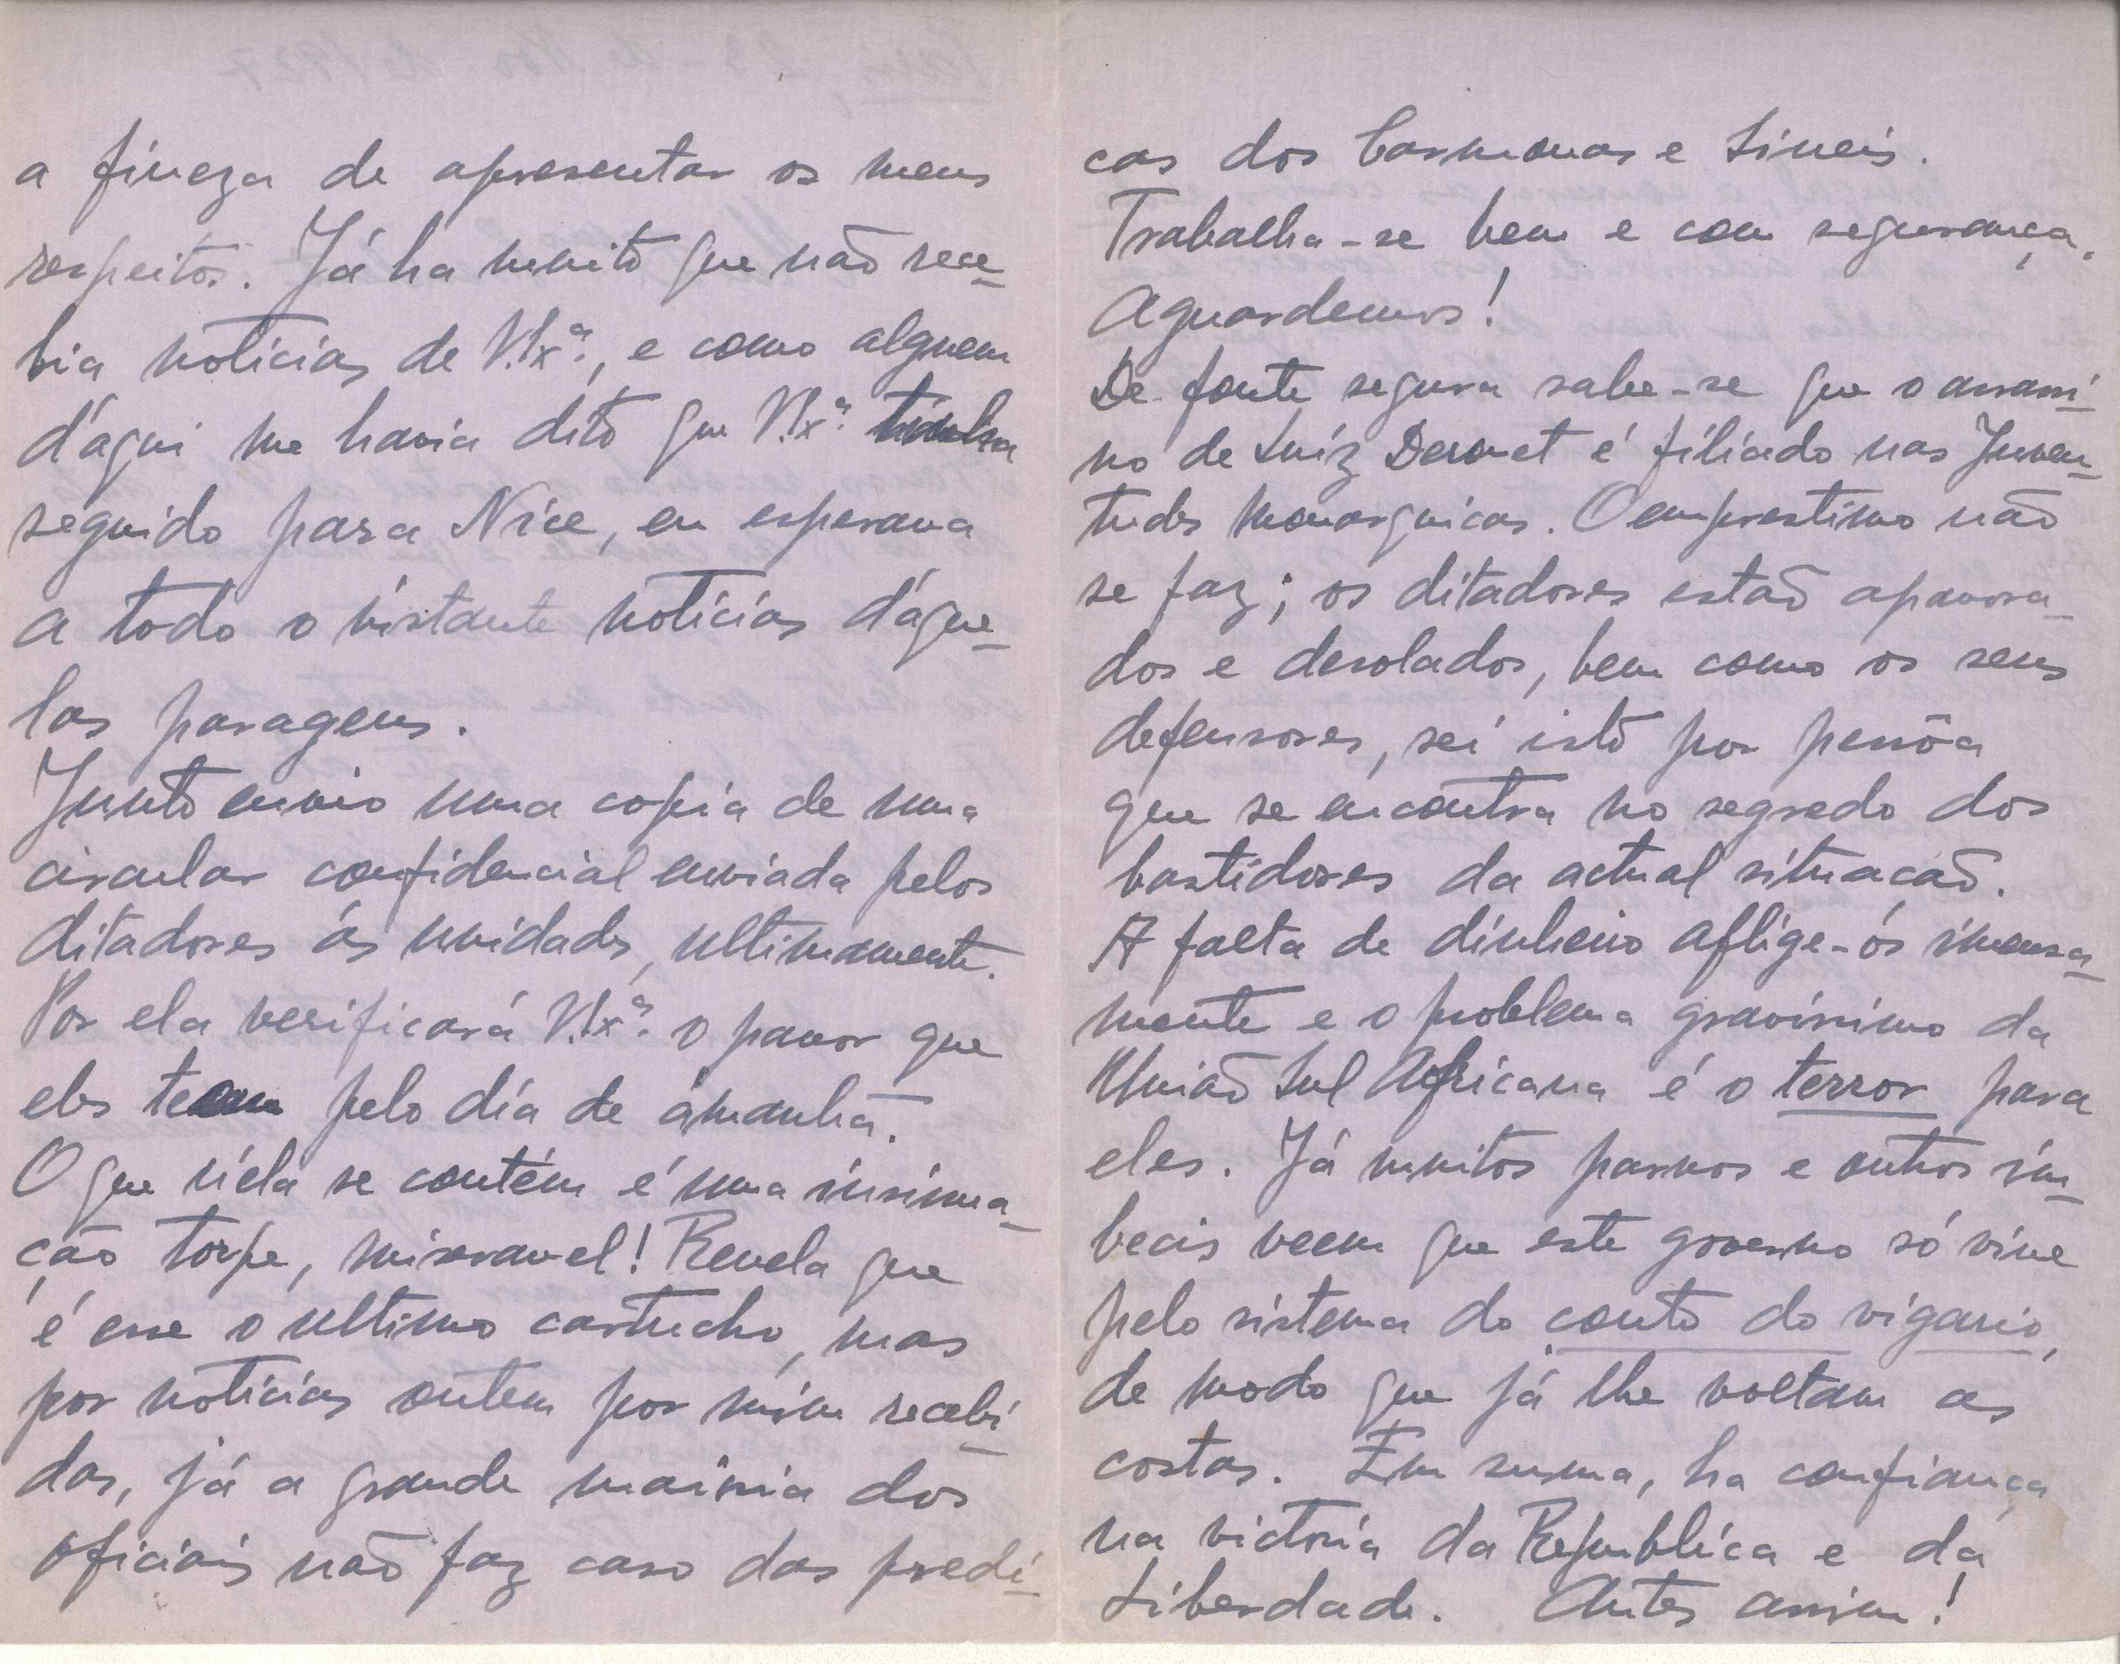 a fineza de apresentar os meus
respeitos. Já ha muito que não rece-
bia noticias de V. Exª., e como alguem
d'aqui me havia dito que V. Exª. tinha
seguido para Nice, eu esperava
a todo o instante noticias d'aque-
las paragens.
Junto envio uma copia de uma
circular confidencial enviada pelos
ditadores ás unidades, ultimamente.
Por ela verificará V. Exª. o pavor que
eles teem pelo dia de ámanhã.
O que n'ela se contém é uma insinua-
ção torpe, miseravel! Revela que
é esse o ultimo cartucho, mas
por noticias ontem por mim recebi-
das, já a grande maioria dos
oficiais não faz caso das predi-
cas dos Carmonas e Sineis.
Trabalha-se bem e com segurança.
Aguardemos!
De fonte segura sabe-se que o assassi-
no de Luiz Derouet é filiado nas Juven-
tudes monarquicas. O emprestimo não
se faz; os ditadores estão apavora-
dos e desolados, bem como os seus
defensores, sei isto por pessôa
que se encontra no segredo dos
bastidores da actual situacão.
A falta de dinheiro aflige-ós imensa-
mente e o problema gravissimo da
União Sul Africana é o terror para
eles. Já muitos parvos e outros im-
becis veem que este governo só vive
pelo sistema do conto do vigario,
de modo que já lhe voltam as
costas. Em suma, ha confiança
na victoria da Republica e da
Liberdade. Antes assim!